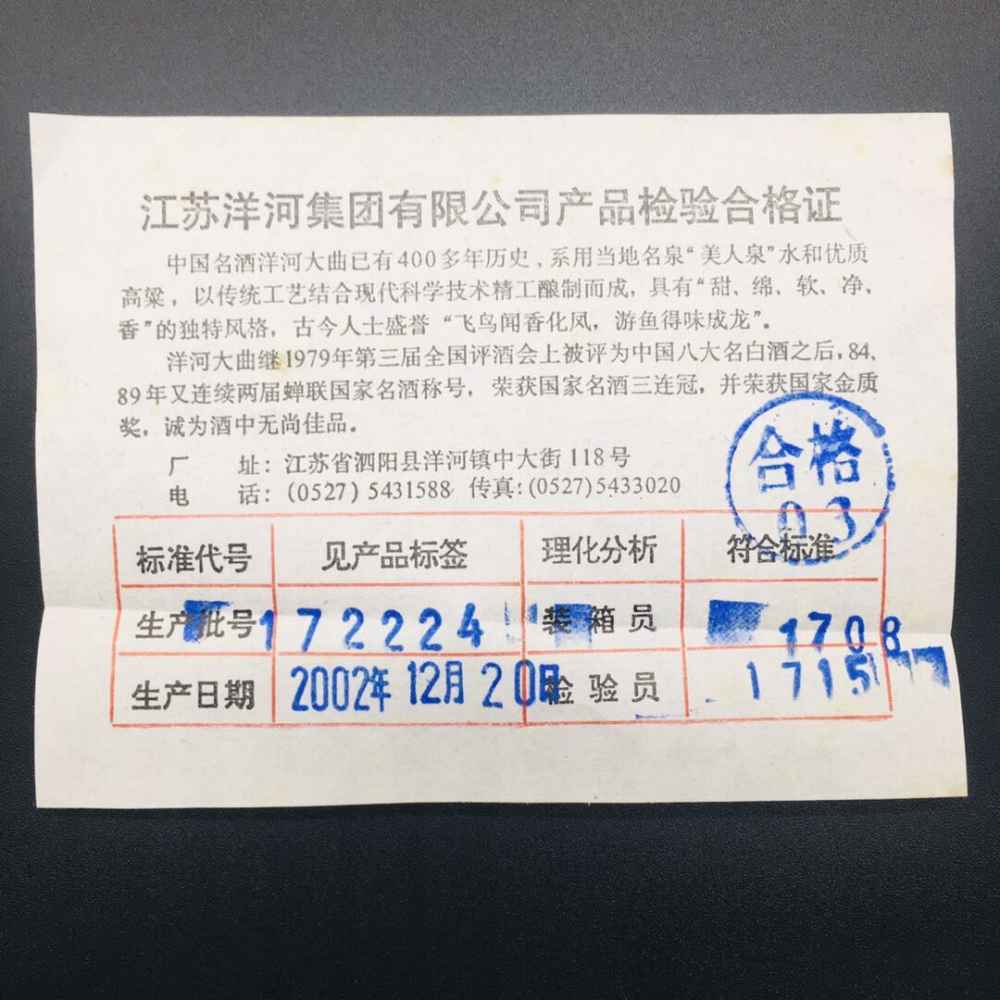 江苏洋河集团有限公司产品检验合格证
中国名酒洋河大曲已有400多年历史、系用当地名泉“美人泉”水和优质
高粱，以传统工艺结合现代科学技术精工酿制而成，具有“甜、绵、软、净、
香”的独特风格，古今人士盛誉“飞鸟闻香化凤，游鱼得味成龙”。
洋河大曲继1979年第三届全国评酒会上被评为中国八大名白酒之后，84、
89年又连续两届蝉联国家名酒称号，荣获国家名酒三连冠，并荣获国家金质
奖，诚为酒中无尚佳品。
厂 址：江苏省泗阳县洋河镇中大街118号
电 话：(0527) 5431588 传真:(0527)5433020
合格
03
标准代号 见产品标签 理化分析 符合标准
生产批号 172224 装箱员 1708
生产日期 2002年12月20日 检验员 1715